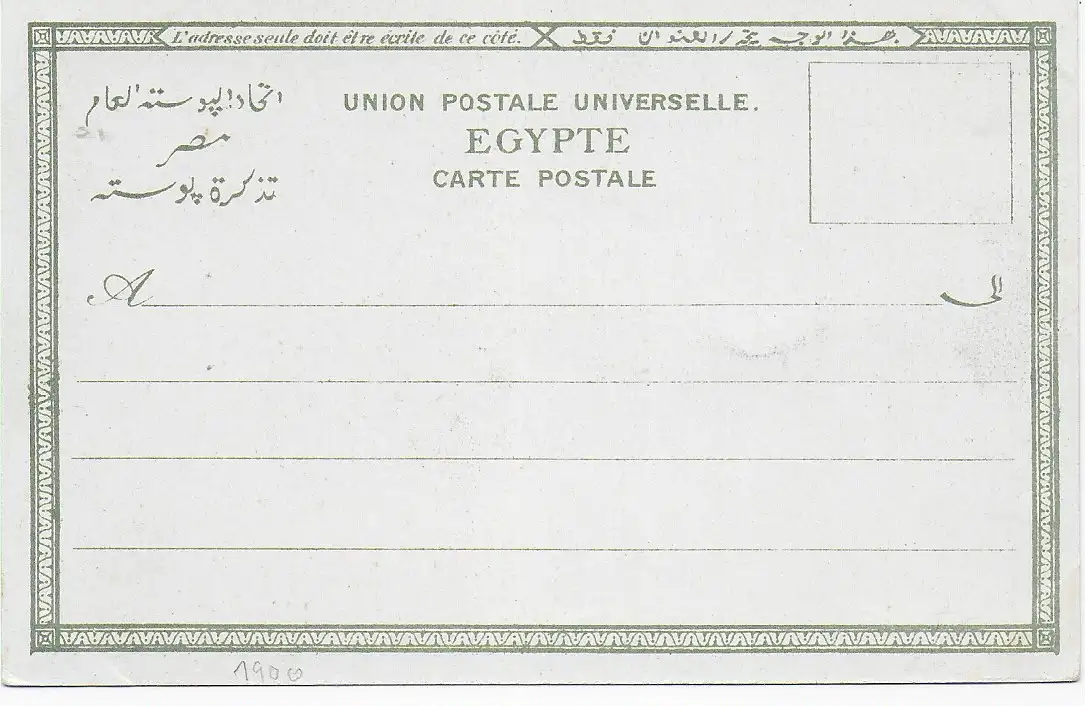 L'adresse seule doit être écrite de ce côté. بهذا الوجه يحرر العنوان فقط
اتحاد البوسته العام
مصر
تذكرة بوسته
UNION POSTALE UNIVERSELLE.
EGYPTE
CARTE POSTALE
A الى
1900